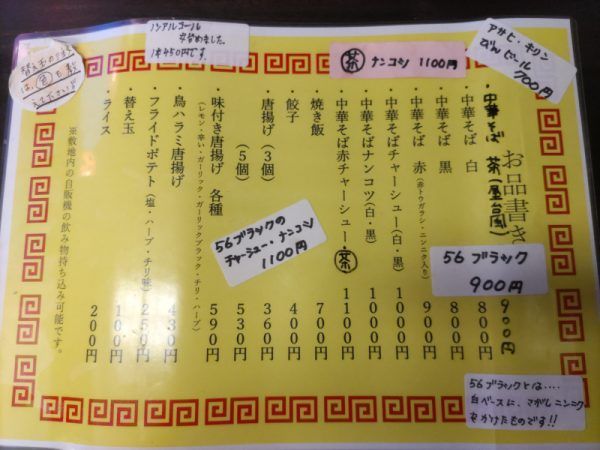 お品書き
中華そば 茶（屋台風） 900円
中華そば 白 800円
中華そば 黒 800円
中華そば 赤（赤トウガラシ・ニンニク入り） 900円
中華そばチャーシュー（白・黒） 1000円
中華そばナンコツ（白・黒） 1000円
中華そば赤チャーシュー・茶 1100円
焼き飯 700円
餃子 400円
唐揚げ（3個） 360円
（5個） 530円
味付き唐揚げ 各種 590円
（レモン・辛い・ガーリック・ガーリックブラック・チリ・ハーブ）
鳥ハラミ唐揚げ 430円
フライドポテト（塩・ハーブ・チリ味） 250円
替え玉 100円
ライス 200円
※敷地内の自販機の飲み物持ち込み可能です。
アサヒ・キリン
びんビール
700円
茶 ナンコツ 1100円
ノンアルコール
1本450円です。
替え玉の
は、
56ブラックの
チャーシュー・ナンコツ
1100円
56ブラック
900円
56ブラックとは....
白ベースに、マー油ニンニク
をかけたものです!!